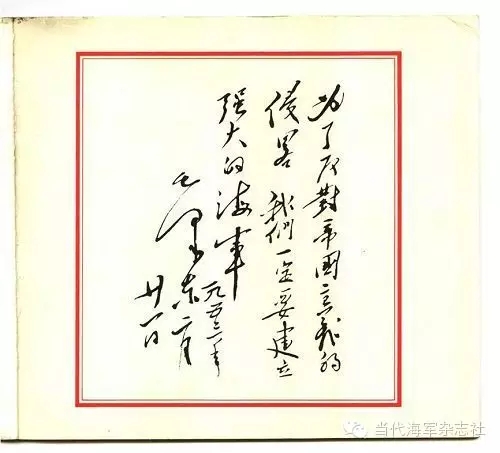 为了反對帝國主義的
侵畧 我們一定要建立
强大的海軍
一九五三年
毛澤东 二月
廿一日
当代海军杂志社